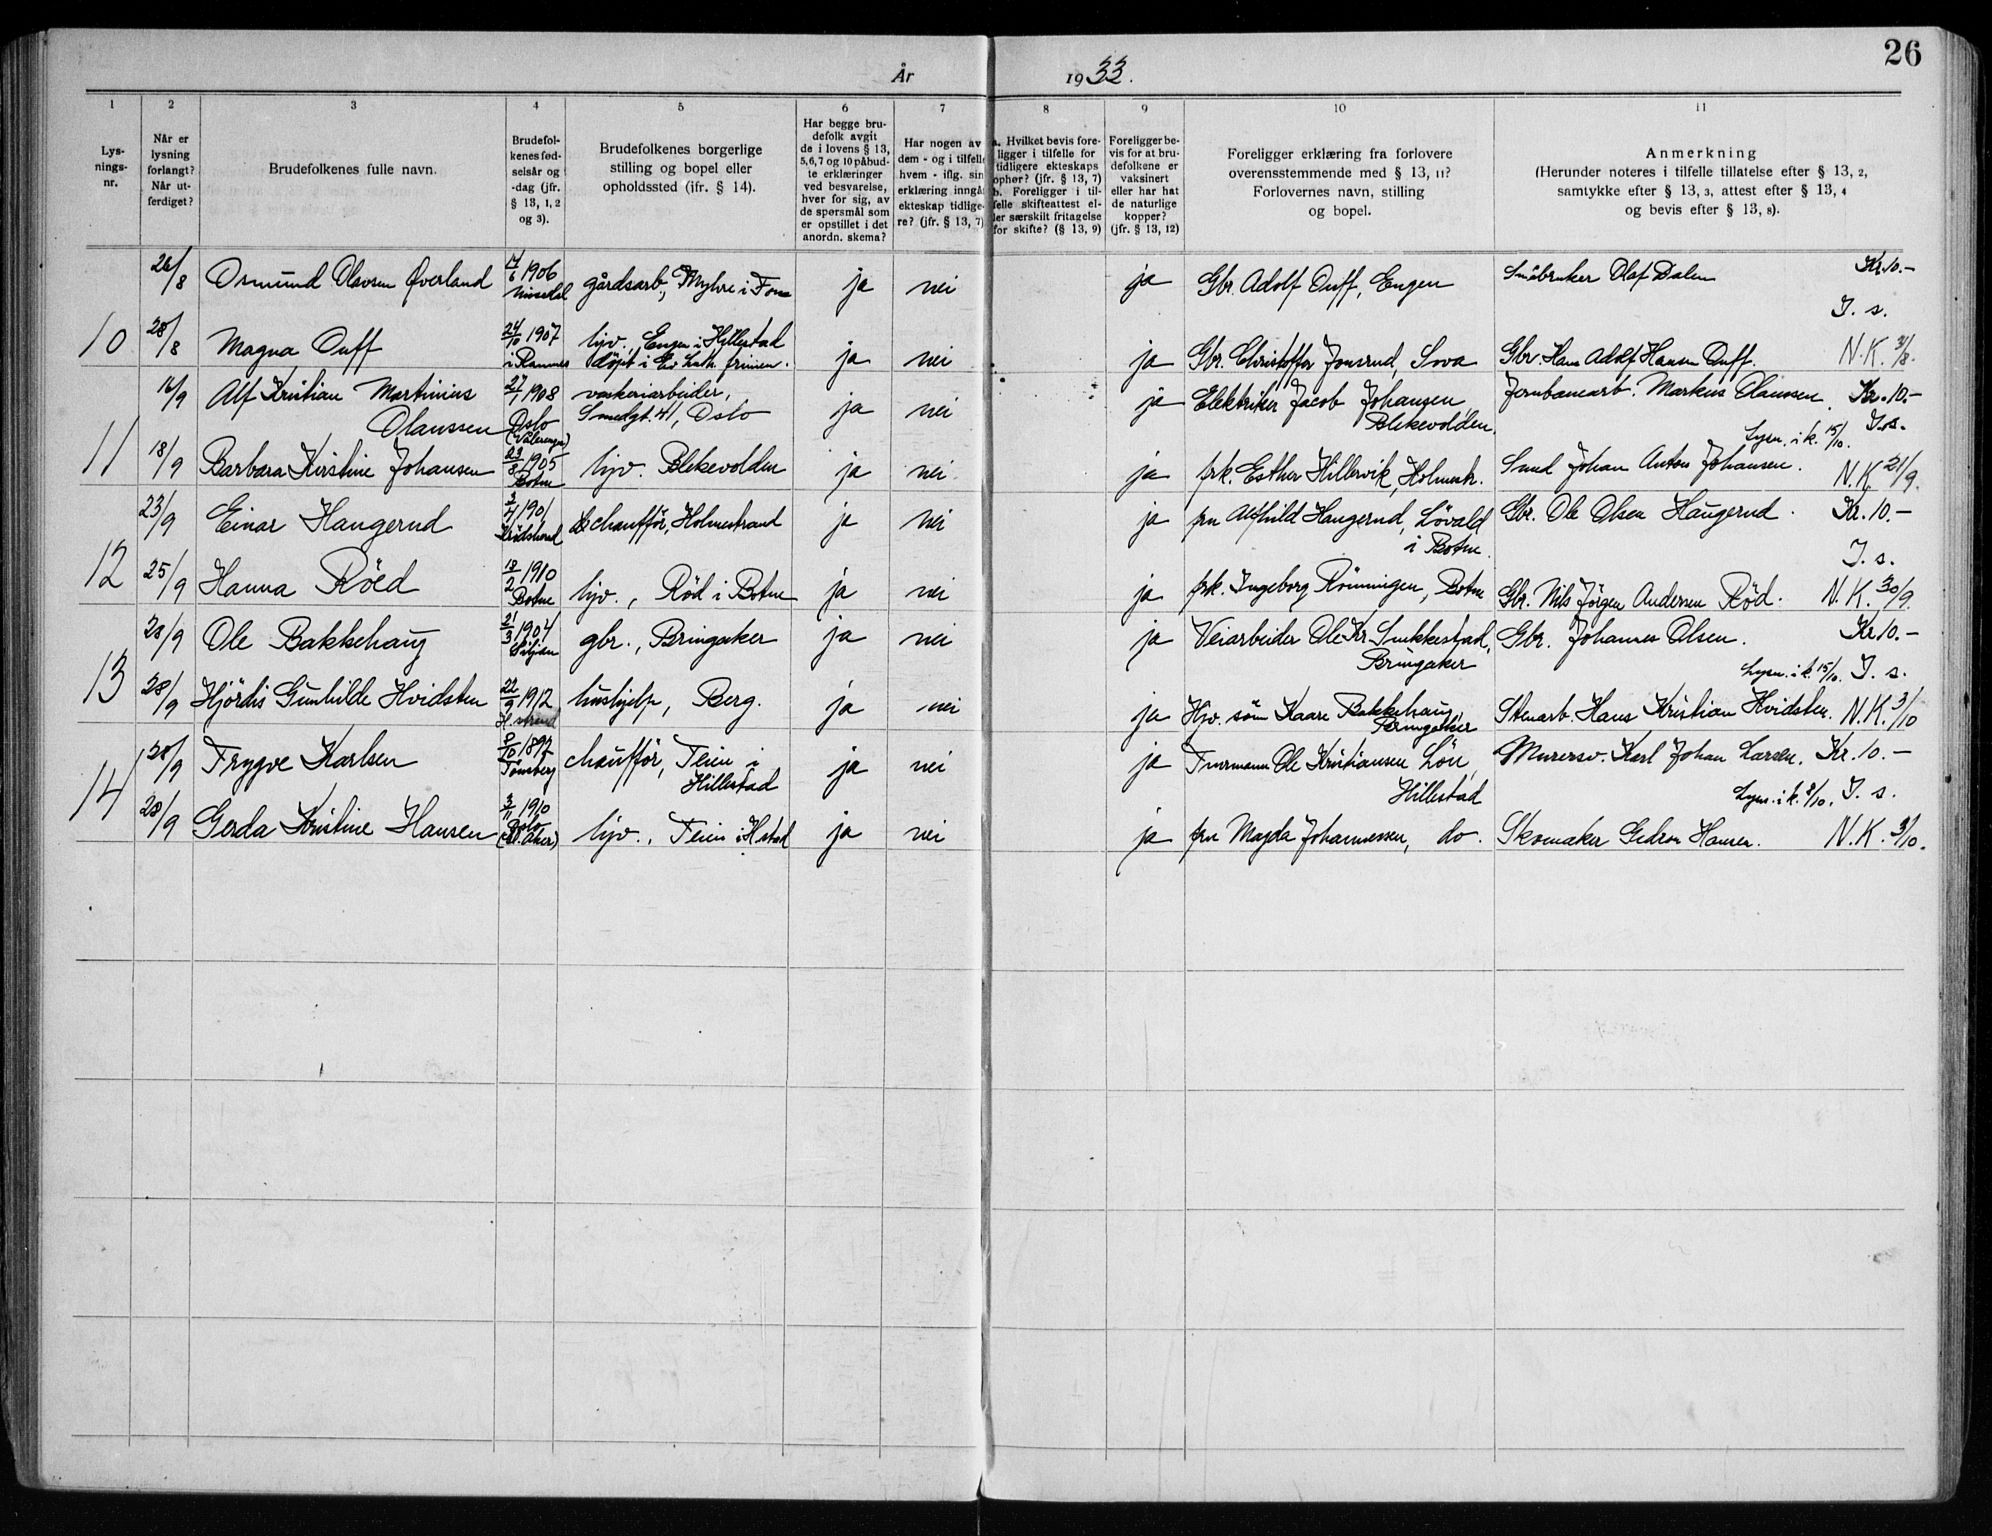 26
År 1933.
1 2 3 4 5 6 7 8 9 10 11
Lys-
nings-
nr.
Når er
lysning
forlangt?
Når ut-
ferdiget?
Brudefolkenes fulle navn.
Brudefol-
kenes fød-
selsår og
-dag (jfr.
§ 13, 1, 2
og 3).
Brudefolkenes borgerlige
stilling og bopel eller
opholdssted (ifr. § 14).
Har begge bru-
defolk avgit
de i lovens § 13,
5,6,7 og 10 påbud-
te erklæringer
ved besvarelse,
hver for sig, av
de spørsmål som
er opstillet i det
anordn. skema?
Har nogen av
dem - og i tilfelle
hvem - iflg. sin
erklæring inngå
ekteskap tidlige-
re? (jfr. § 13, 7)
a. Hvilket bevis fore-
ligger i tilfelle for
tidligere ekteskaps
ophør? (jfr. § 13, 7)
b. Foreligger i til-
felle skifteattest el-
ler særskilt fritagelse
for skifte? (§ 13, 9)
Foreligger be-
vis for at bru-
defolkene er
vaksinert
eller har hat
de naturlige
kopper?
(jfr. § 13, 12)
Foreligger erklæring fra forlovere
overensstemmende med § 13, 11?
Forlovernes navn, stilling
og bopel.
Anmerkning
(Herunder noteres i tilfelle tillatelse efter § 13, 2,
samtykke efter § 13, 3, attest efter § 13, 4
og bevis efter § 13, 8).
26/8 Osmund Olavsen Øverland 17/6 1906 gårdsarb., Myhre i Fon ja nei ja Gbr. Adolf Duff, Engen Småbruker Olaf Dalen Kr. 10.-
Nissedal
J. s.
10 28/8 Magna Duff 24/10 1907 hjv., Engen i Hillestad ja nei ja Gbr. Christoffer Jonsrud, Sova Gbr. Hans Adolf Hansen Duff. N.K. 31/8.
i Ramnes døpt i Ev. Luth. frimen.
16/9 Alf Kristian Martinius 27/1 1908 vaskeriarbeider, ja nei ja Elektriker Jacob Johansen Jernbanearb. Markus Olaussen. Kr. 10.-
Olaussen Oslo Smedgt. 41, Oslo Blekevolden.
(Vålerengen) Lysn. i k. 15/10. J. s.
11 18/9 Barbara Kirstine Johansen 23/8 1905 hjv. Blekevolden ja nei ja frk. Esther Hillervik, Holmestr. Smed Johan Anton Johansen. N.K. 21/9.
Botne
23/9 Einar Haugerud 3/4 1901 chauffør, Holmestrand ja nei ja fru Alfhild Haugerud, Løvald Gbr. Ole Olsen Haugerud. Kr. 10.-
i Botne.
J. s.
12 25/9 Hanna Röed 18/2 1910 hjv., Rød i Botne ja nei ja frk. Ingeborg Rönningen, Botne Gbr. Nils Jörgen Andersen Röd. N.K. 30/9.
Botne
28/9 Ole Bakkehaug 21/3 1904 gbr., Bringaker ja nei ja Veiarbeider Ole Kr. Snekkestad, Gbr. Johannes Olsen. Kr 10.-
Siljan Bringaker
Lysn. i k. 15/10. J. s.
13 28/9 Hjördis Gunhilde Hvidsten 22/9 1912 hushjelp, Berg. ja nei ja Hjv. søn Kaare Bakkehaug, Stenarb. Hans Kristian Hvidsten. N.K. 3/10
H.strand Bringaker
28/9 Trygve Karlsen 8/10 1897 chauffør, Teien i ja nei ja Fuermann Ole Kristiansen Löu, Murersv. Karl Johan Larsen. Kr. 10.-
Tønsberg Hillestad Hillestad
Lysn. i k. 8/10. J. s.
14 28/9 Gerda Kristine Hansen 3/11 1910 hjv., Teien i H.stad ja nei ja fru Magda Johannessen, do. Skomaker Gedion Hansen. N.K. 3/10.
Oslo